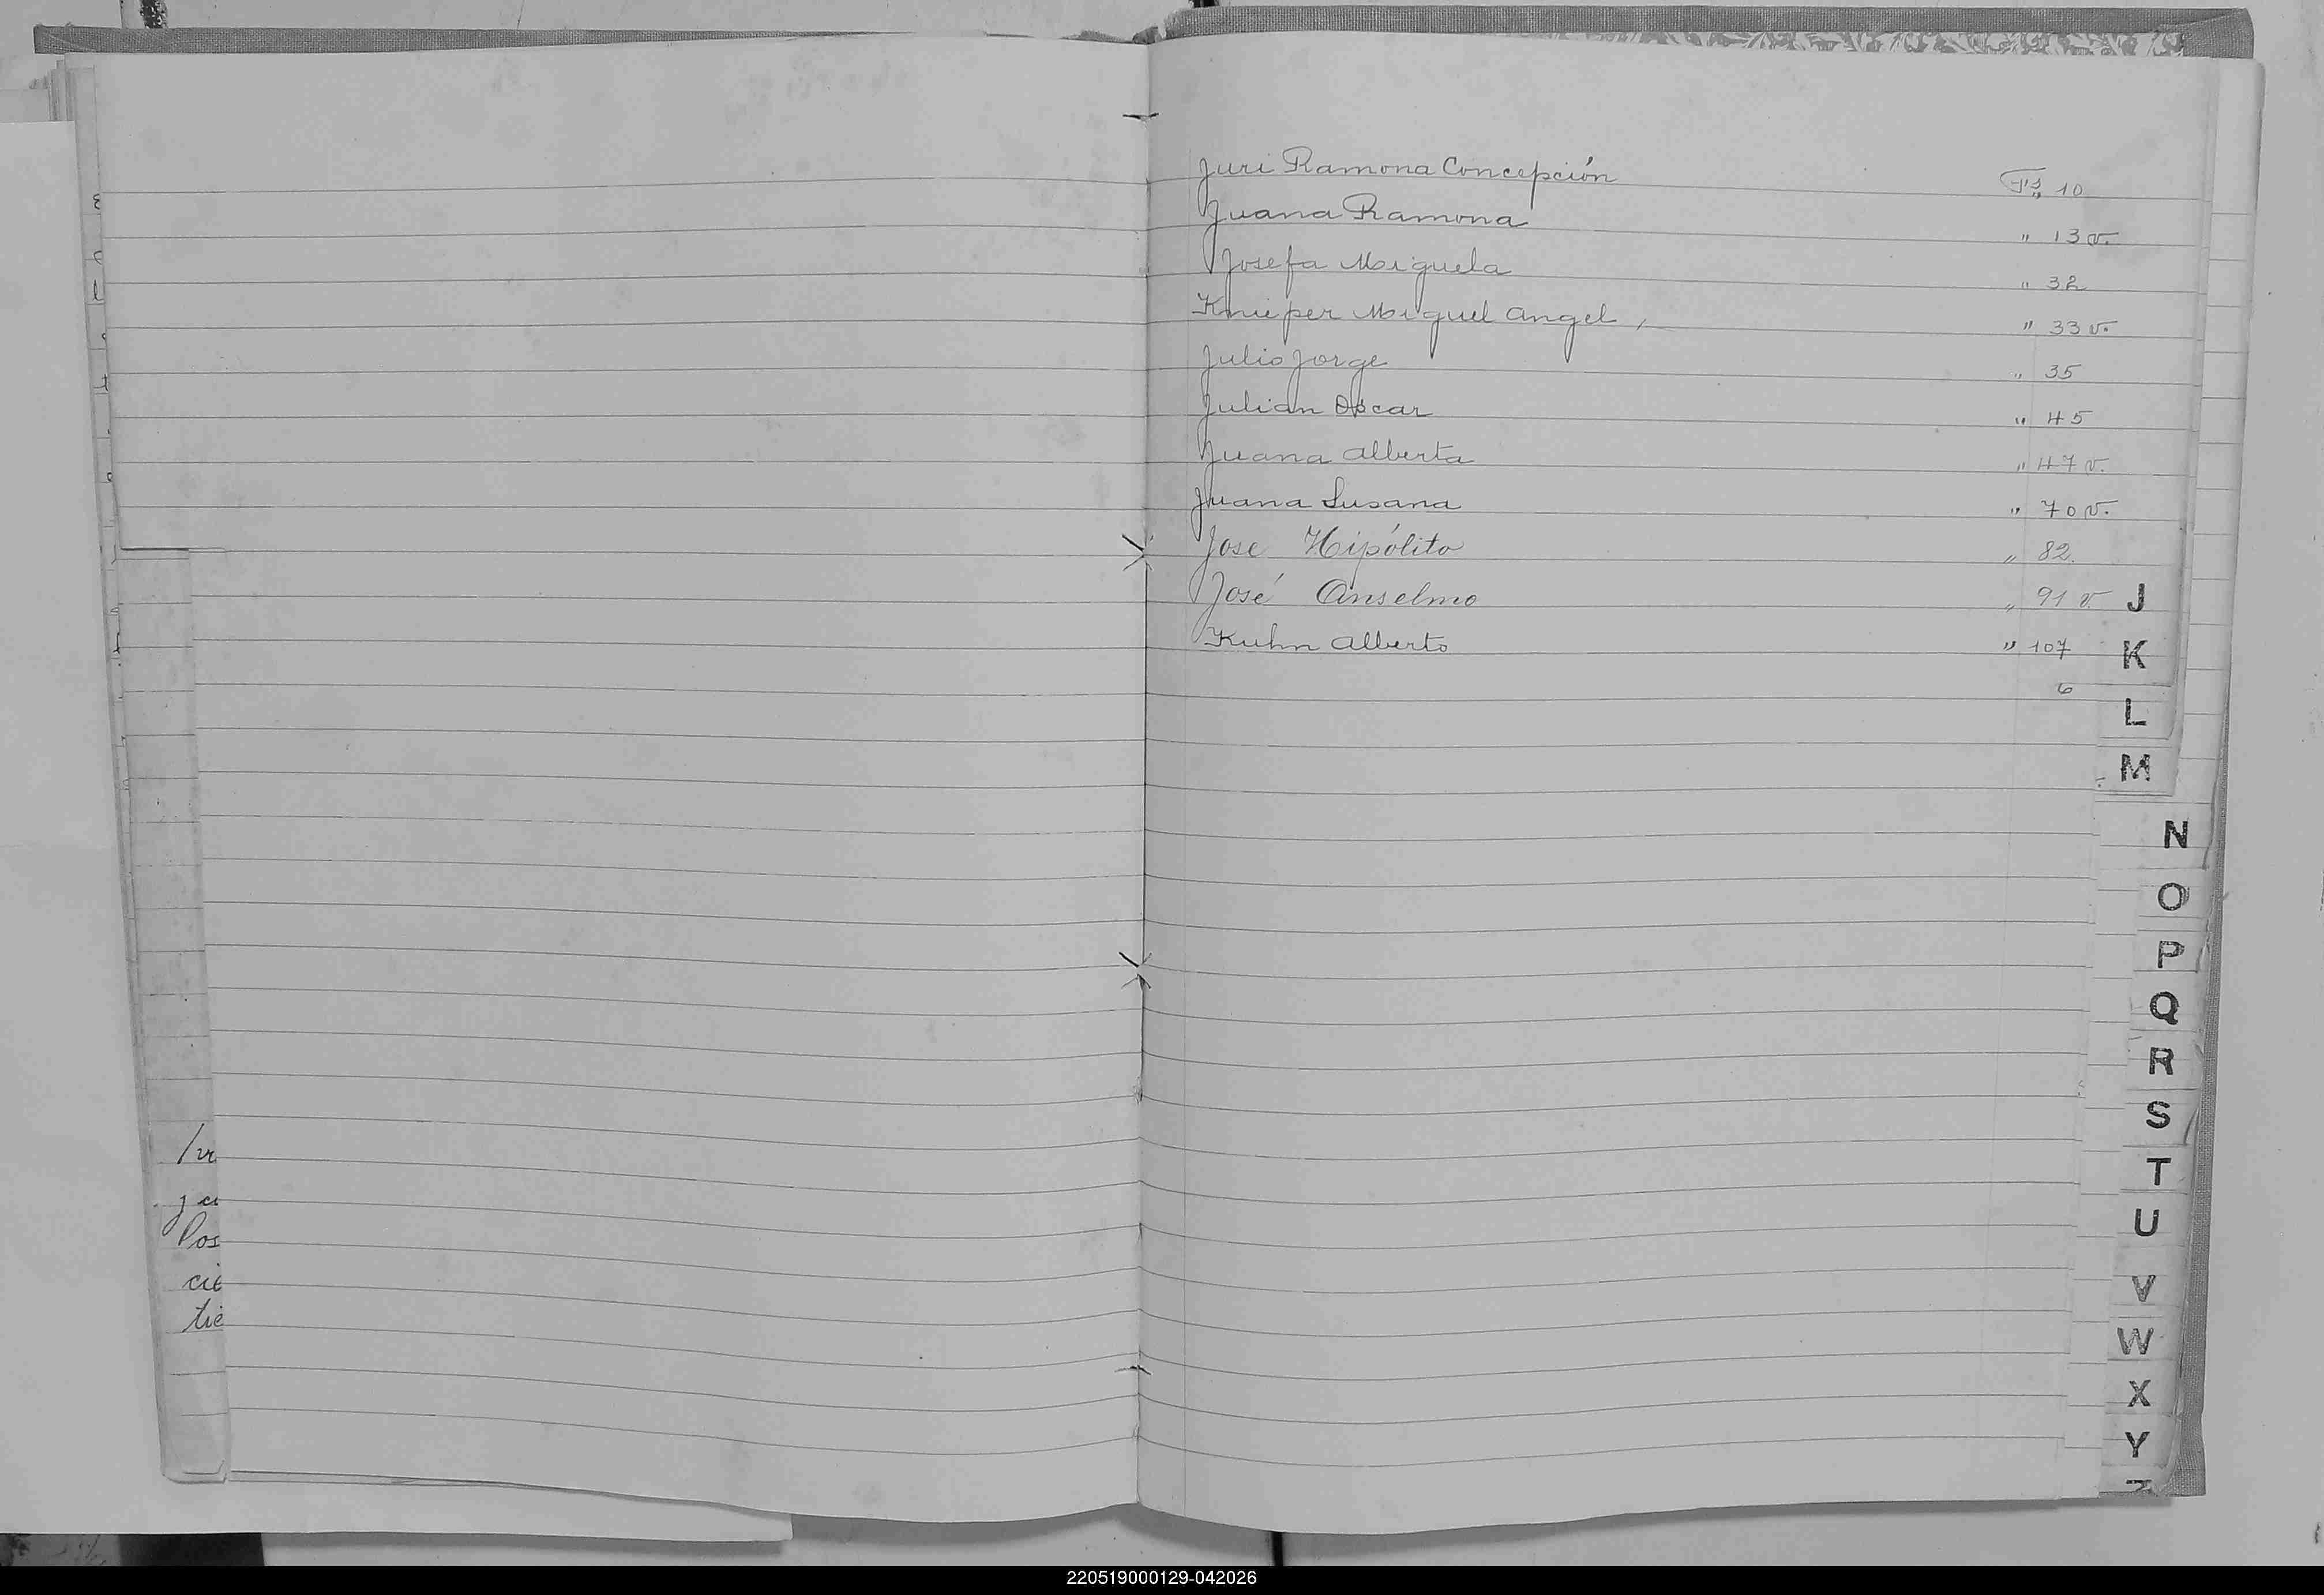 Juri Ramona Concepción Fs 10
Juana Ramona " 13 v.
Josefa Miguela " 32
Knieper Miguel Angel, " 33 v.
Julio Jorge " 35
Julian Oscar " 45
Juana Alberta " 47 v.
Juana Susana " 70 v.
Jose Hipólito " 82.
José Anselmo " 91 v.
Kuhn Alberto " 107
6
J
K
L
M
N
O
P
Q
R
S
T
U
V
W
X
Y
Pos
cie
tie
220519000129-042026